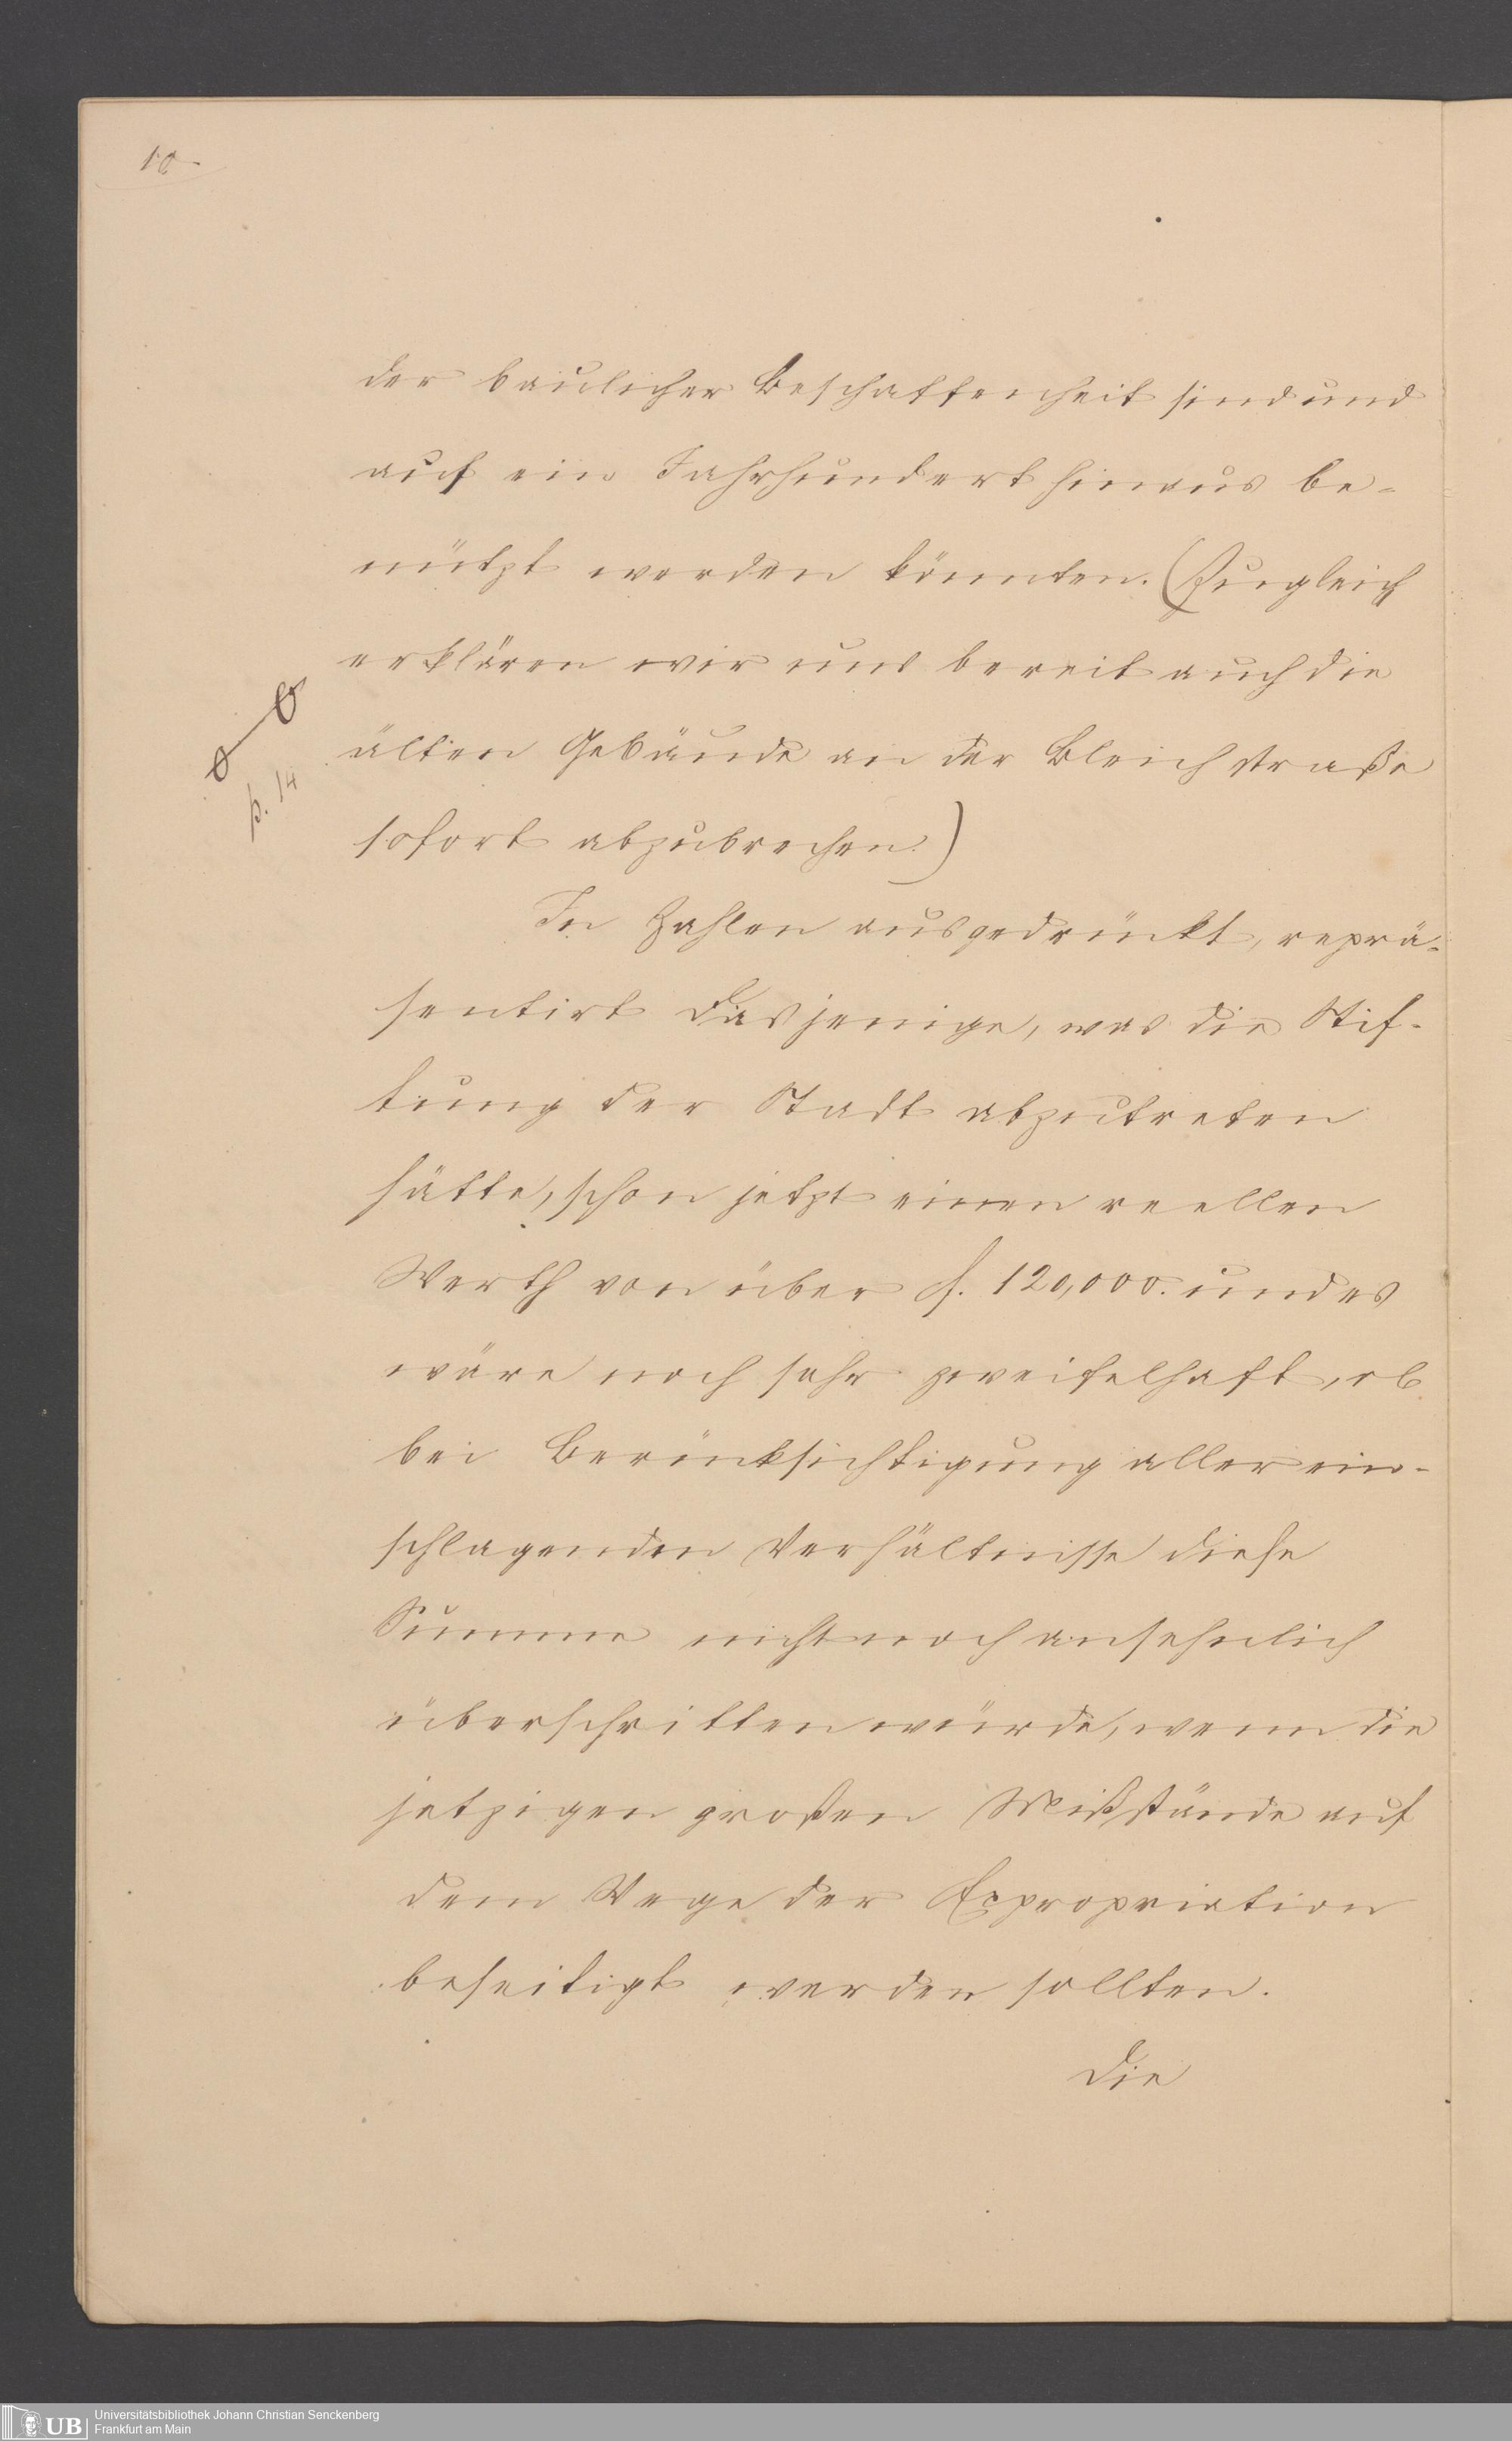 10.
der baulicher Beschaffenheit sind und
auf ein Jahrhundert hinaus be-
nützt werden könnten. (Zugleich
erklären wir uns bereit auch die
älten Gebäude an der Bleichstraße
p. 14
sofort abzubrechen.)
In Zahlen ausgedrückt, reprä-
sentirt dasjenige, was die Stif-
tung der Stadt abzutreten
hätte, schon jetzt einen reellen
Werth von über f. 120,000. und es
wäre noch sehr zweifelhaft, ob
bei Berücksichtigung aller ein-
schlagenden Verhältnisse diese
Summe nicht noch ansehnlich
überschritten würde, wenn die
jetzigen großen Mißstände auf
dem Wege der Expropriation
beseitigt werden sollten.
Die
UB
Universitätsbibliothek Johann Christian Senckenberg
Frankfurt am Main